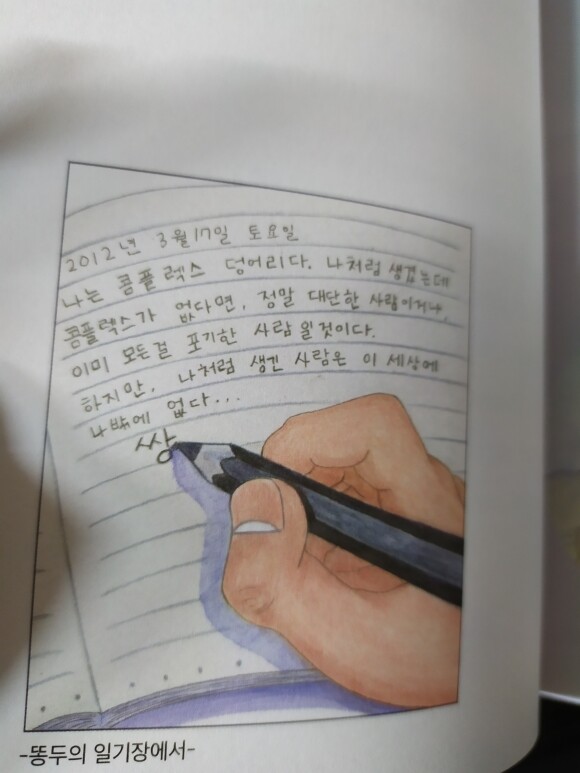 2012년 3월17일 토요일
나는 콤플렉스 덩어리다. 나처럼 생겼는데
콤플렉스가 없다면, 정말 대단한 사람이거나,
이미 모든걸 포기한 사람일것이다.
하지만, 나처럼 생긴 사람은 이 세상에
나밖에 없다...
쌍
-똥두의 일기장에서-